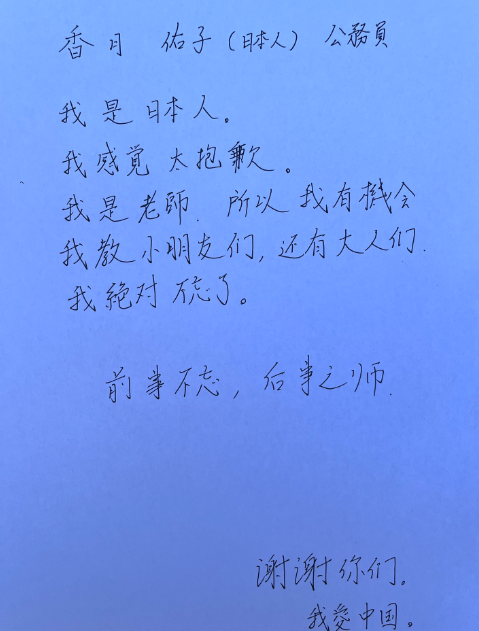 香月 佑子（日本人） 公務員
我是日本人。
我感觉太抱歉。
我是老師. 所以我有機会
我教小朋友们, 还有大人们.
我絶对不忘了。
前事不忘, 后事之师.
谢谢你们.
我愛中国。